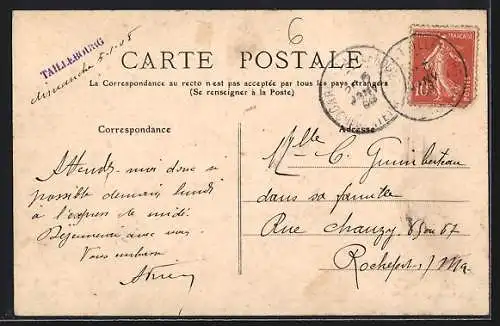 6
TAILLEBOURG
dimanche 5-1-08
CARTE POSTALE
La Correspondance au recto n'est pas acceptée par tous les pays étrangers
(Se renseigner à la Poste)
Correspondance
Adresse
Attendez-moi donc si
possible demain lundi
à l'express de midi.
Déjeunerai avec vous.
Vous embrasse
Mlle C. Guimberteau
dans sa famille
Rue Chauzy 65 ou 67
Rochefort s/ Mer
10